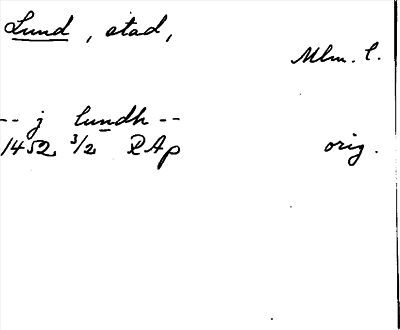 Lund, stad,
Mlm. l.
-- j lundh --
1452 3/2 RAp orig.